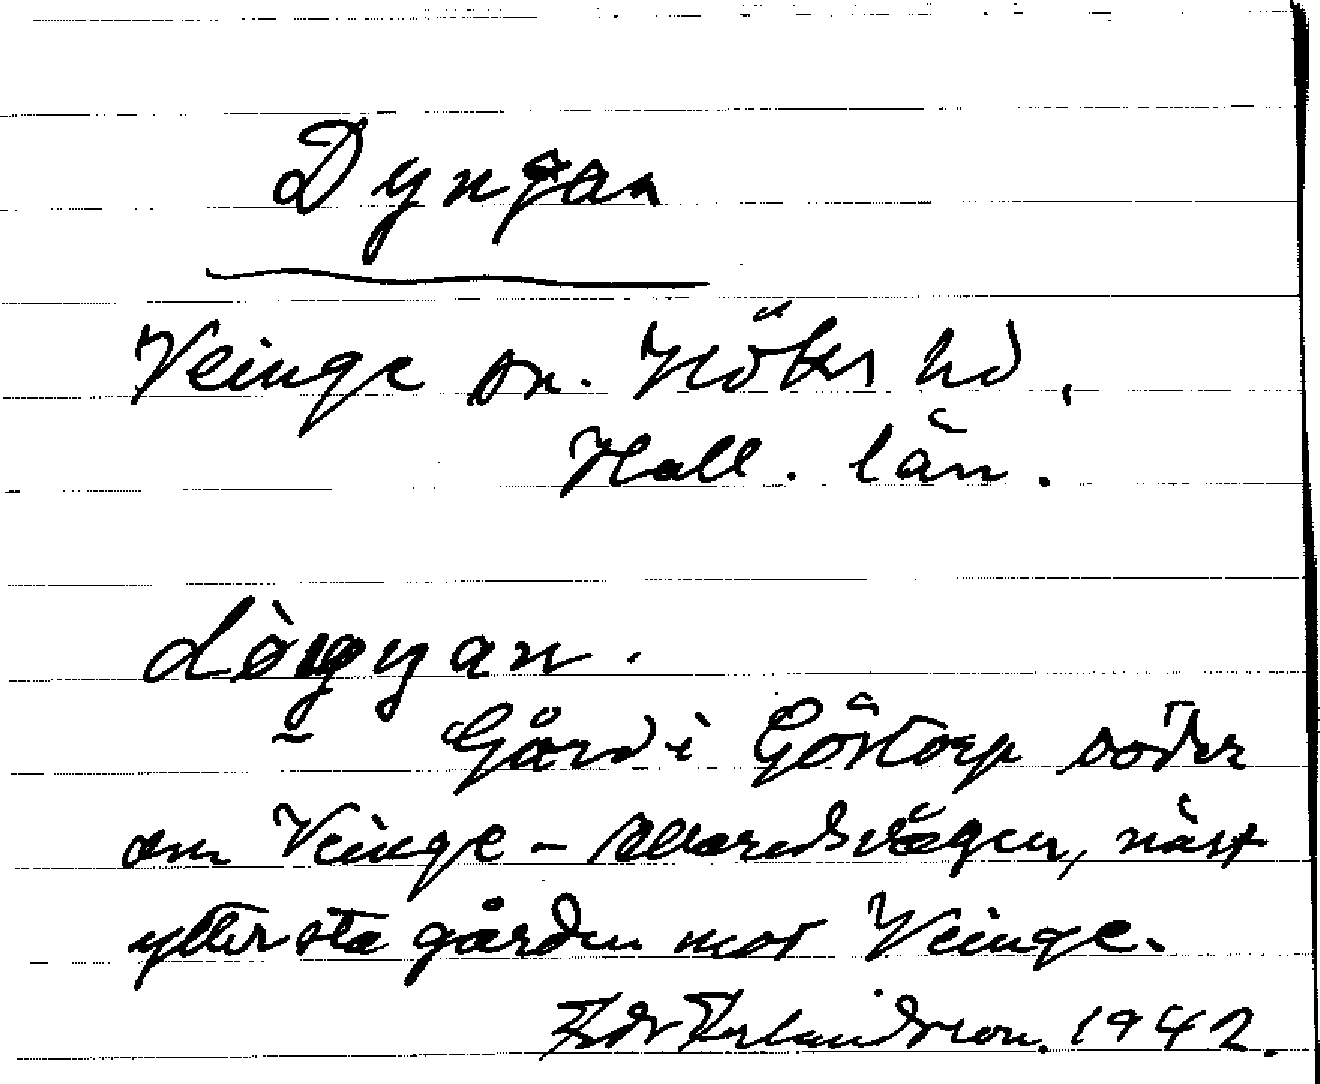 Dyngan
Veinge sn. Höks hd.
Hall. län.
Lögyan.
Gård i Göstorp söder
om Veinge - vägen, näst
yttersta gården mot Veinge.
Erlandsson. 1942.